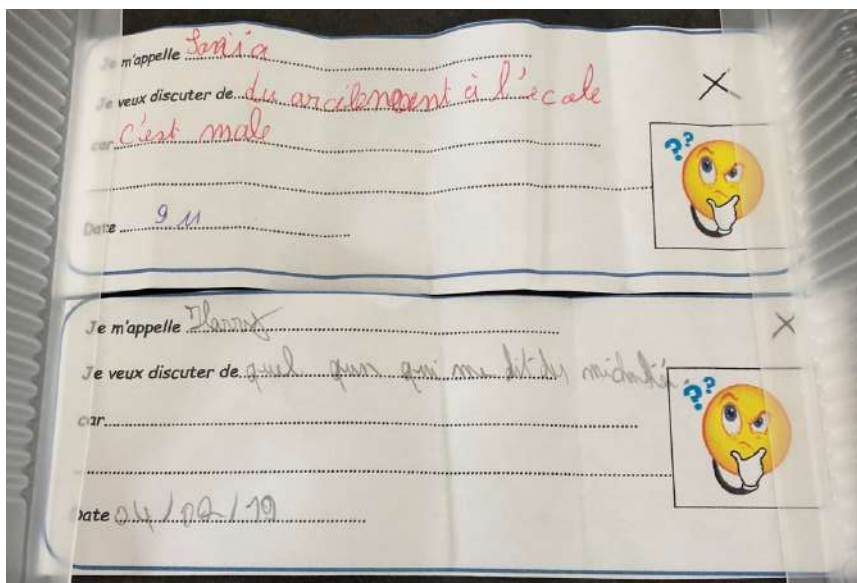 Je m'appelle Sonia
Je veux discuter de du arcelement à l'école
car c'est male
??
Date 9 11
Je m'appelle Harry
Je veux discuter de quel qun qui me dit des
car
??
Date 04/02/19